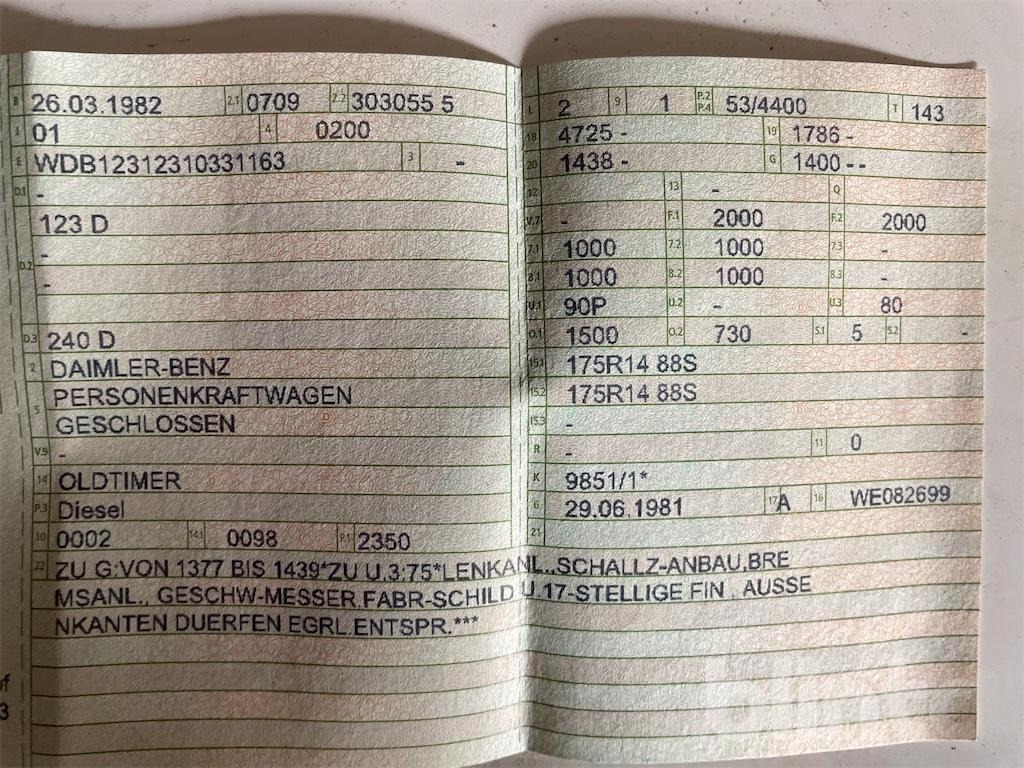 B 26.03.1982 2.1 0709 2.2 303055 5
J 01 4 0200
E WDB12312310331163 3 -
D.1 -
123 D
D.2 -
-
D.3 240 D
2 DAIMLER-BENZ
5 PERSONENKRAFTWAGEN
GESCHLOSSEN
V.9 -
14 OLDTIMER
P.3 Diesel
10 0002 14.1 0098 P.1 2350
L 2 9 1 P.2 P.4 53/4400 T 143
18 4725 - 19 1786 -
20 1438 - G 1400 - -
12 13 - Q
V.7 - F.1 2000 F.2 2000
7.1 1000 7.2 1000 7.3 -
8.1 1000 8.2 1000 8.3 -
U.1 90P U.2 - U.3 80
O.1 1500 O.2 730 S.1 5 S.2 -
15.1 175R14 88S
15.2 175R14 88S
15.3 -
R - 11 0
K 9851/1*
6 29.06.1981 17 A 16 WE082699
21
22 ZU G:VON 1377 BIS 1439*ZU U.3:75*LENKANL.,SCHALLZ-ANBAU,BRE
MSANL., GESCHW-MESSER,FABR-SCHILD U.17-STELLIGE FIN , AUSSE
NKANTEN DUERFEN EGRL.ENTSPR.***